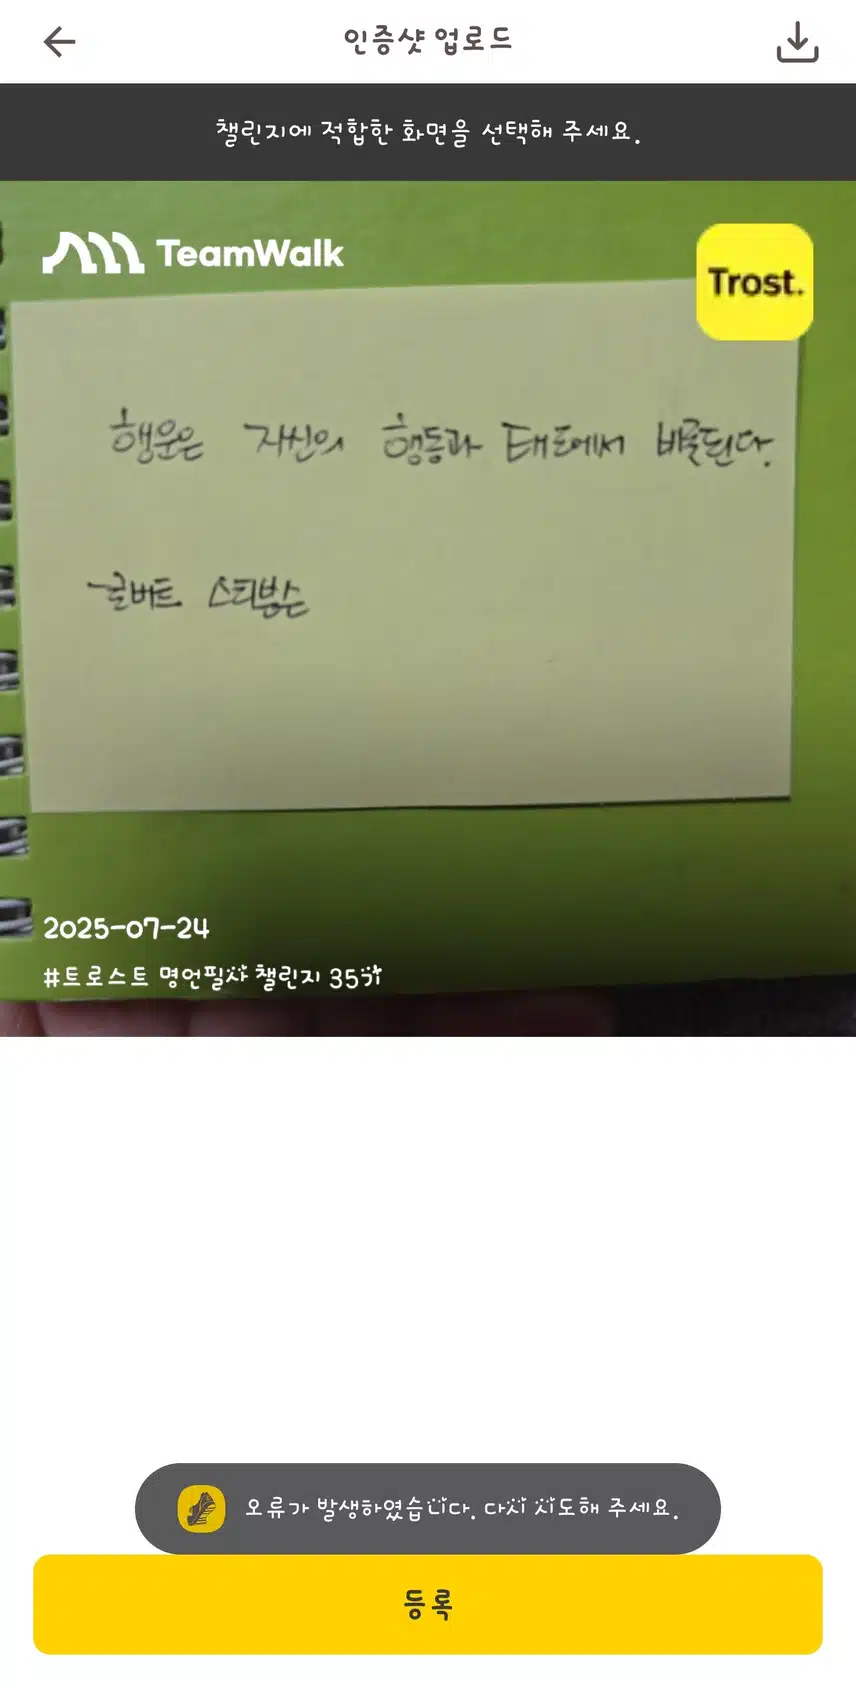 인증샷 업로드
챌린지에 적합한 화면을 선택해 주세요.
TeamWalk
Trost.
행운은 자신의 행동과 태도에서 비롯된다.
로버트 스티븐슨
2025-07-24
#트로스트 명언필사 챌린지 35차
오류가 발생하였습니다. 다시 시도해 주세요.
등록